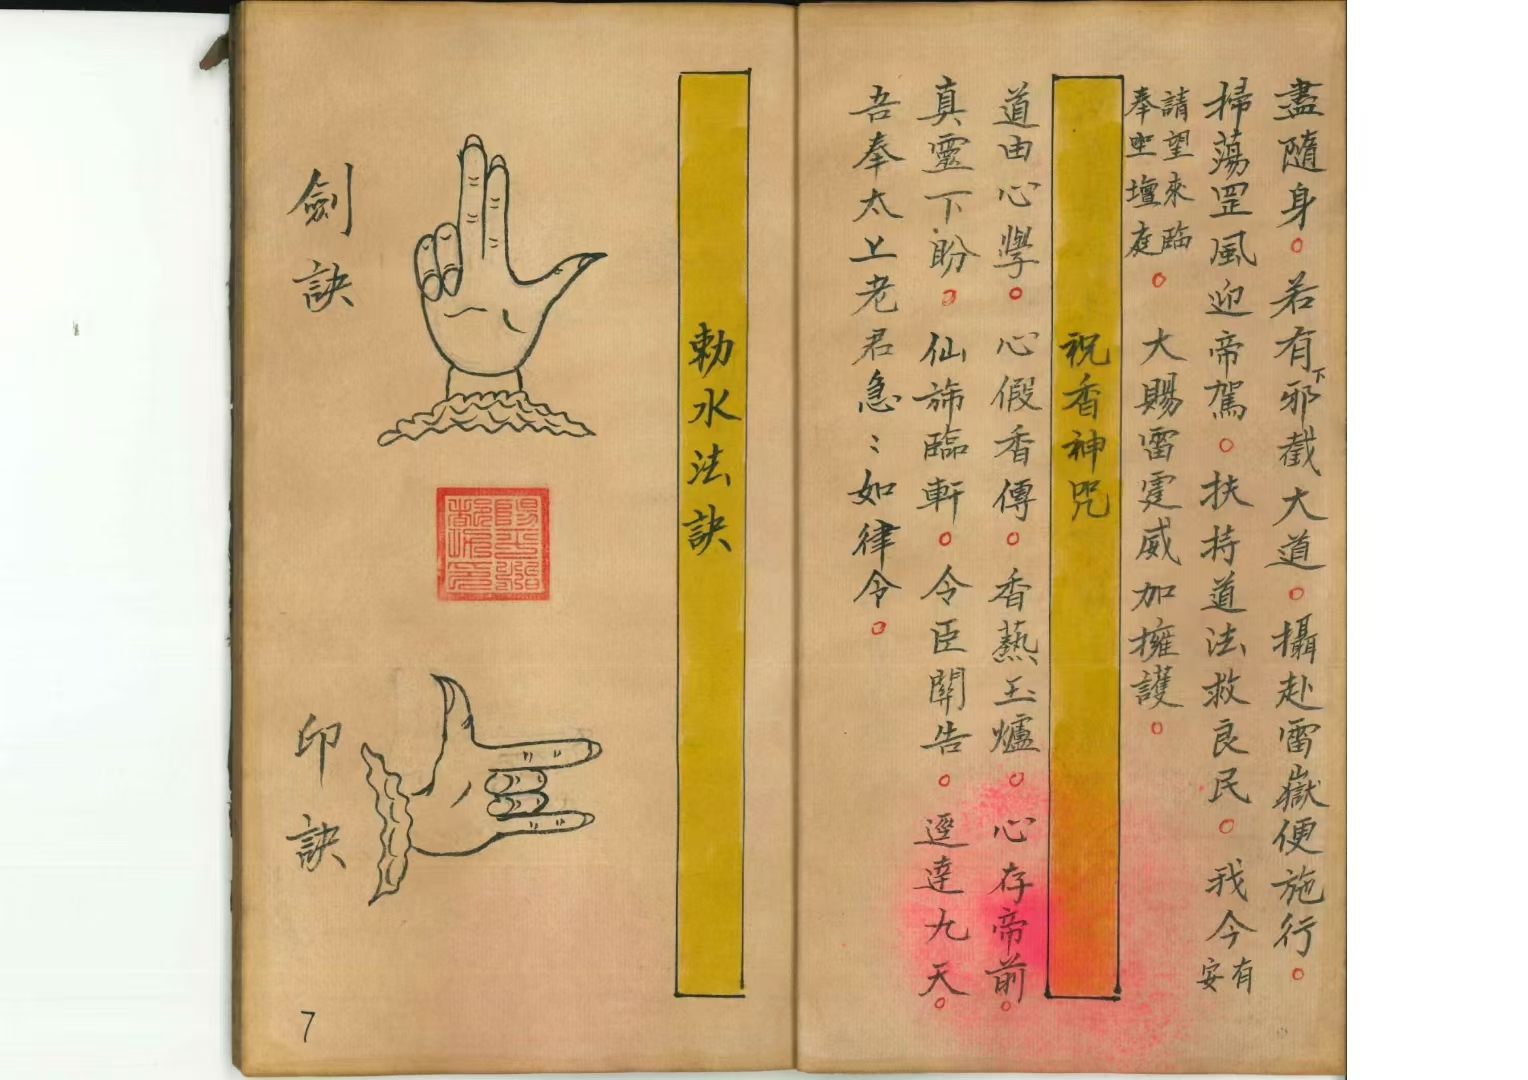 盡隨身。若有下邪截大道。攝赴雷嶽便施行。
掃蕩罡風迎帝駕。扶持道法救良民。我今有安
請望來臨
奉坐壇庭。大賜雷霆威加擁護。
祝香神咒
道由心學。心假香傳。香爇玉爐。心存帝前。
真靈下盼。仙旆臨軒。令臣關告。逕達九天。
吾奉太上老君急〻如律令。
勅水法訣
劍訣
印訣
7